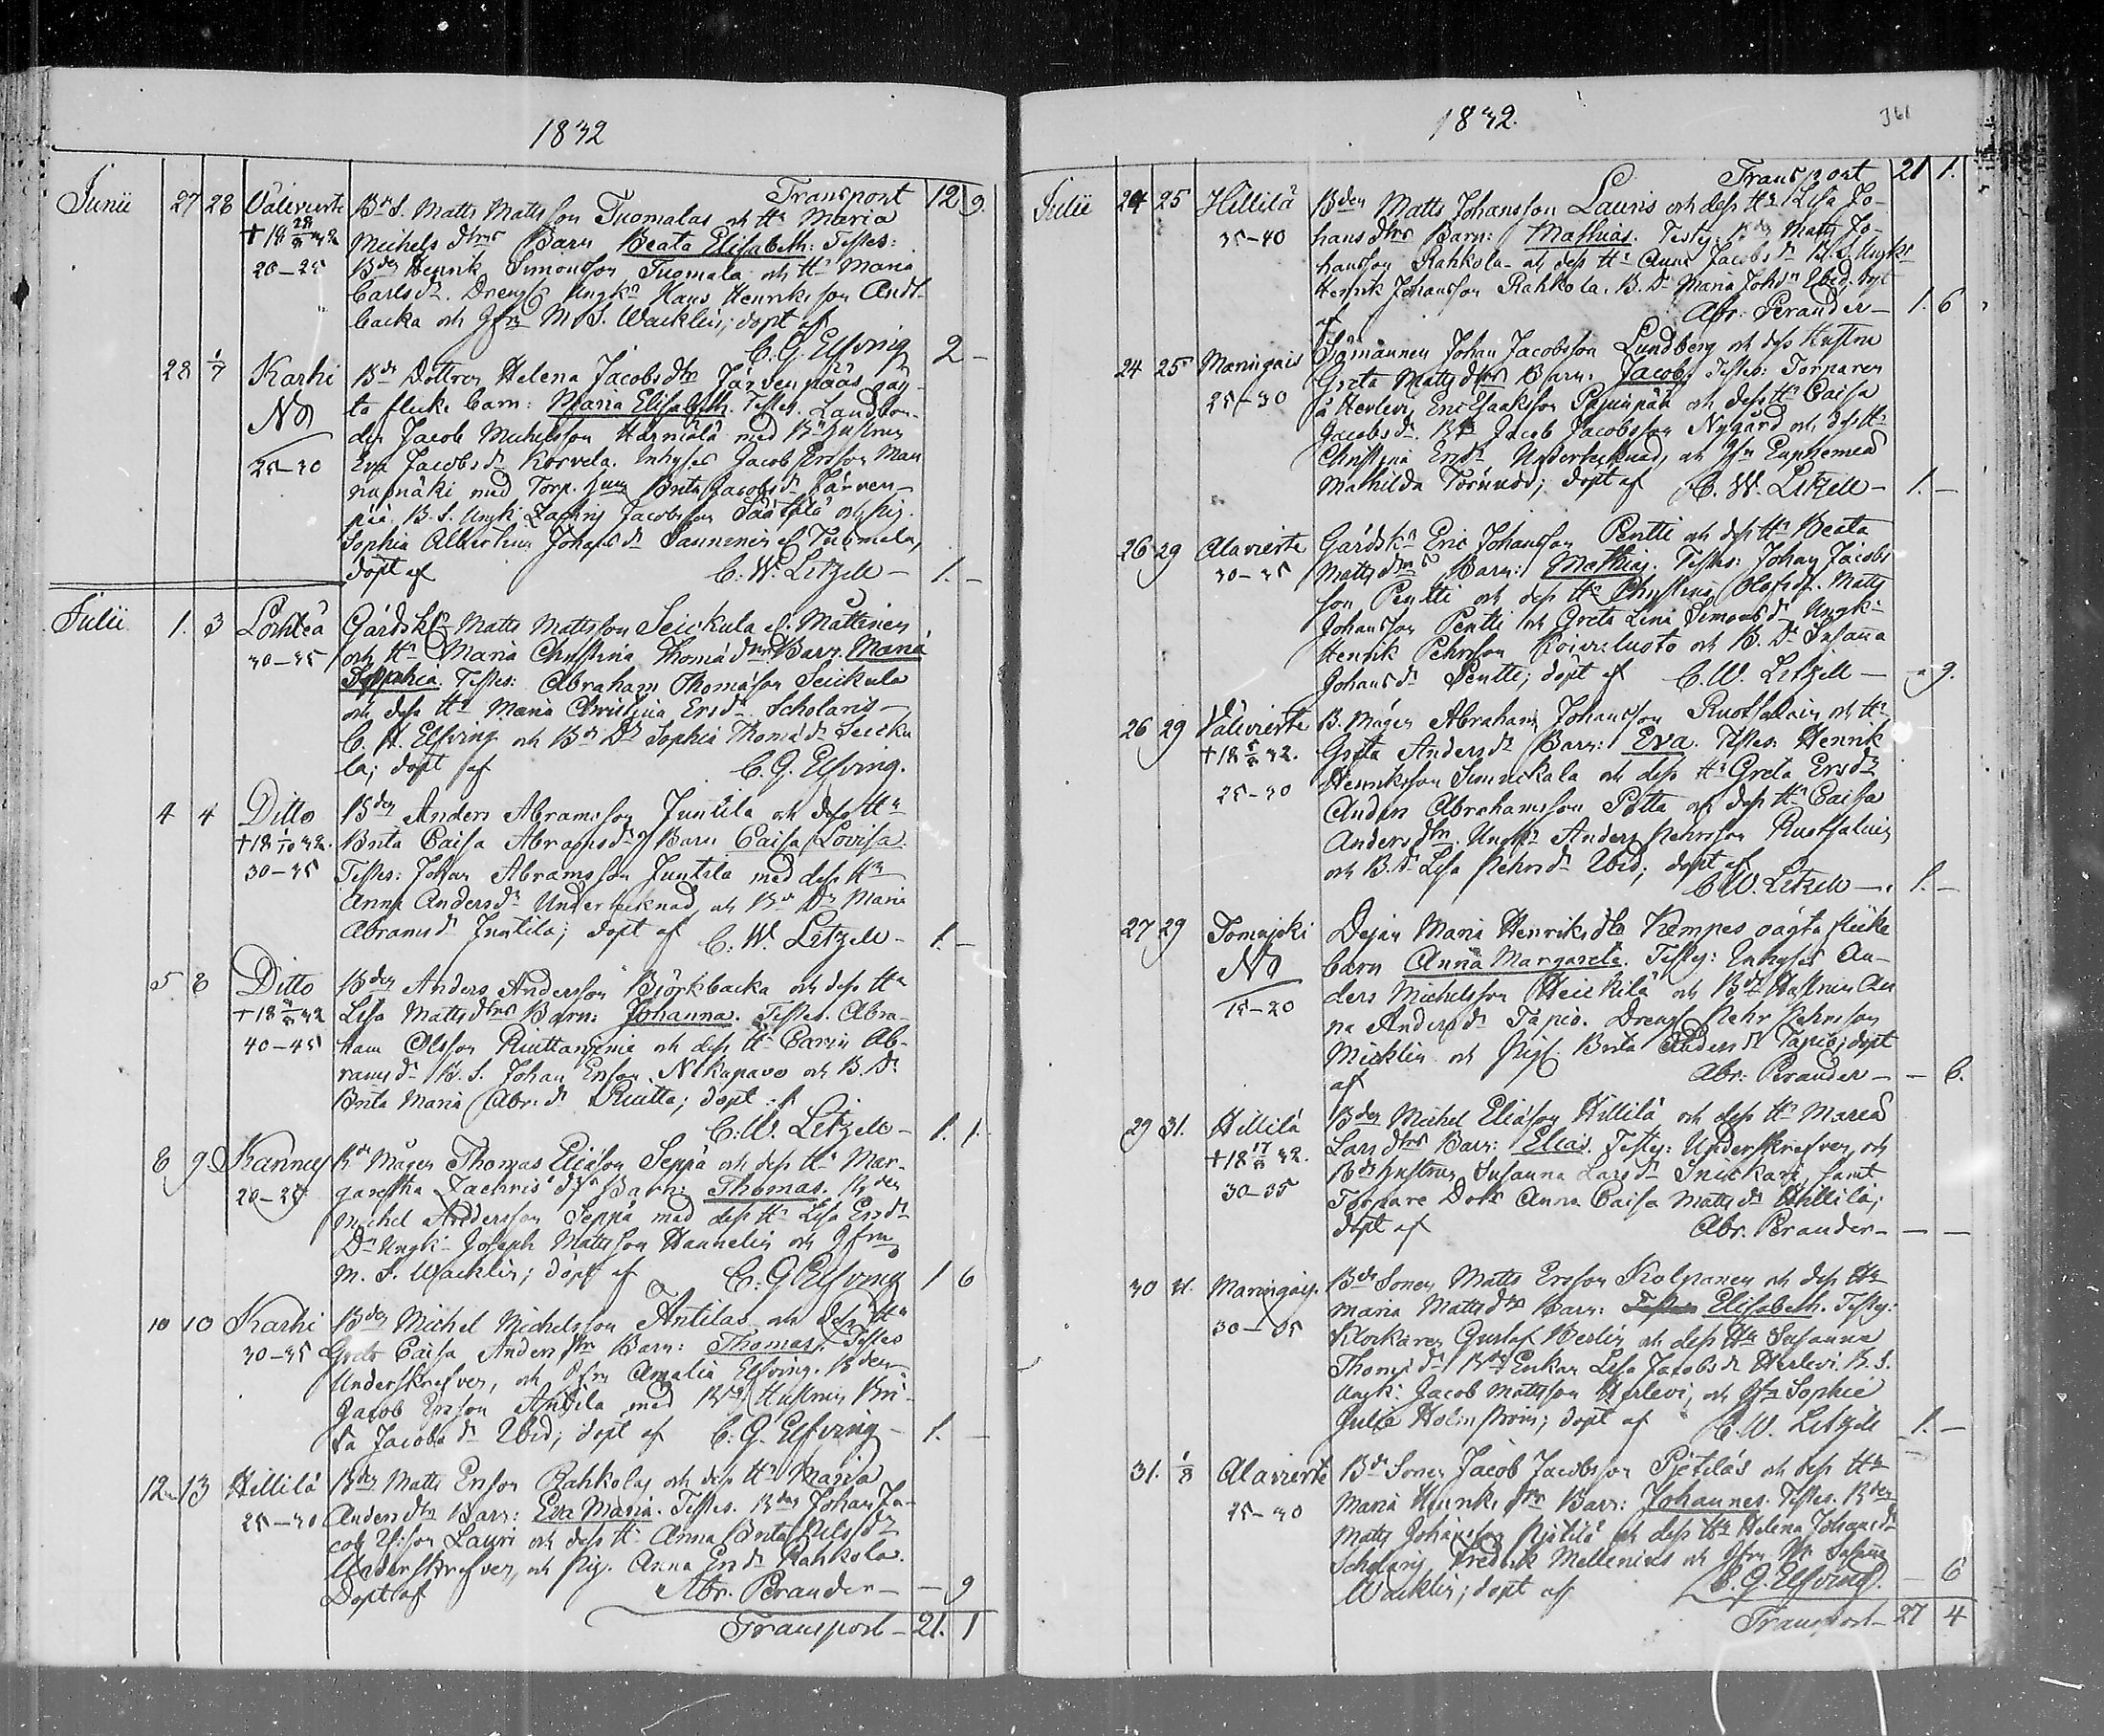 1832
Transport 12 9.
Junii 27 28 Välivierte Bd. S. Matts Mattsson Tuomalas och Hu Maria
+18 28/8 32 Michels dtrs Barn Beata Elisabeth: Testes:
20–25 Bden Henrik Simonsson Tuomala och Hu Maria
Carls dr. Drengs Ungkn Hans Henriksson Anof-
backa och Jfru M. S. Wacklin; döpt af
C. G. Elfving 2 –
28 1/7 Karhi Bde Dottren Helena Jacobs dtr Järvenpääs oäg-
No ta flicke barn: Maria Elisabeth. Testes. Landbon-
den Jacob Michelsson Härmälä med Bde Hustrun
25–30 Eva Jacobs dr Korvela. Inhyses Jacob Ersson Man
nusmäki med Torp. Hustr Brita Jacobs dr Järven-
pää. B. S. Ungk: Zachris Jacobsson och Pig.
Sophia Albertina Johans dr
döpt af C. W. Litzell – 1. –
Julii 1. 3 Lochteå Gårdsk Matts Mattsson Seickula el. Mattinen
30–35 och Hu Maria Christina Thomæ dtrs Barn. Maria
Sophia. Testes: Abraham Thomæson Seikula
och dess Hu Maria Christina Ers dr. Scholaris
C. H. Elfving och Bd Dr Sophia Thomæ dr Seicku
la; döpt af C. G. Elfving.
4 4 Ditto Bden Anders Abramsson Juntila och dess Hu
+18 1/10 32. Brita Caisa Abrams drs Barn Caisa Lovisa.
30–35 Testes: Johan Abramsson Juntila med dess Hu
Anna Anders dr Undertecknad, och Bde Dr Maria
Abrams dr Juntila; döpt af C. W. Litzell – 1. –
5 8 Ditto Bden Anders Andersson Björkbacka och dess Hu
+18 /8 32 Lisa Matts dtrs Barn: Johannes. Testes. Abra-
40–45 ham Olsson och dess Hu Carin Ab-
rams dr B. S. Johan Ersson Nikupavo och B. Dr
Brita Maria Abr. dr Riutta; döpt af
C. W. Litzell – 1. 1.
8 9. Kannus Bde Mågen Thomas Eliæson Seppä och dess Hu Mar-
20–25 garetha Zachris drs Barn: Thomas. Bden
Michel Andersson Seppä med dess Hu Lisa Ers dr
Dr Ungk: Joseph Mattsson Hannelin och Jfru
M. S. Wacklin; döpt af C. G. Elfving 1 6
10 10 Karhi Bden Michel Michelsson Antilas och dess Hu
30–35 Greta Caisa Anders dtrs Barn: Thomas. Testes
Underskrefven, och Jfru Amalia Elfving. Bden
Jacob Ersson Antila med Bde Hustrun Bri-
ta Jacobs dr Ibid; döpt af C. G. Elfving – 1. –
12 13 Hillilä Bden Matts Ersson Rahkolas och dess Hu Maria
25–30 Anders dtrs Barn: Eva Maria. Testes. Bden Johan Ja-
cobsson Lauri och dess Hu Anna Brita Nils dr
Underskrefven, och Pig. Anna Ers dr Rahkola.
Döpt af Abr. Perander – – 9
Transport – 21. 1
1832. 361
Transport 21 1.
Julii 24 25 Hillilä Bden Matts Johansson Lauris och dess Hu Lisa Jo-
35–40 hans dtrs Barn: Mathias. Testes. Bden Matts Jo-
hansson Rahkola och dess Hu Anna Jacobs dr B. S. Ungkn
Henrik Johansson Rahkola. B. Dr Maria Johs dr Ibid. döpt
af Abr: Perander – 1. 6
24 25 Maringais Sömannen Johan Jacobsson Lundberg och dess Hustru
25–30 Greta Matts dtrs Barn. Jacob. Testes: Torparen
å Herlevi Eric Isaksson och dess Hu Caisa
Jacobs dr. Bde Jacob Jacobsson Nygård och dess Hu
Christina Ers dr Undertecknad, och Jfru Euphemea
Mathilda Törnroos; döpt af C. W. Litzell – 1. –
26 29 Alavierte Gårdskn Eric Johansson Pentti och dess Hu Beata
30–35 Matts dtrs Barn: Mathias. Testes: Johan Jacobs
son Pentti och dess Hu Christina Olofs dr. Matts
Johansson Pentti och Greta Lena Simons dr Ungk:
Henrik Pehrsson Koivuluoto och B. Dr Susanna
Johans dr Pentti; döpt af C. W. Litzell – – 9.
26 29 Välivierte B. Mågen Abraham Johansson Ruotsalain och Hu
+18 5/8 32. Greta Anders dr Barn: Eva. Testes: Henrik
25–30 Henriksson Simickala och dess Hu Greta Ers dr
Anders Abrahamsson Potta och dess Hu Caisa
Anders dtr. Ungkn Anders Pehrsson Ruotsalain
och B. Dr Lisa Pehrs dr Ibid; döpt af
C. W. Litzell – 1. –
27 29 Tomujoki Dejan Maria Henriks dtrs Kempes oägta flicke
No barn Anna Margareta. Testes: Inhyses An-
15–20 ders Michelsson Heickilä och Bde Hustrun An
na Anders dr Tapio. Drengs Pehr Pehrsson
Micklin och Pigs. Brita Anders dr Tapio; döpt
af Abr: Perander – – 6.
29 31. Hillilä Bden Michel Eliæson Hillilä och dess Hu Maria
+18 17/8 32. Lars dtrs Barn: Elias. Testes: Underskrefven och
30–35 Bde Hustrun Susanna Lars dr Snickars, samt
Torpare Dotr Anna Caisa Matts dr Hillilä;
döpt af Abr. Perander – – –
30 31. Maringais. Bde Sonen Matts Ersson Kolpanen och dess Hu
30–35 Maria Matts dtrs Barn: Elisabeth. Testes:
Klockaren Gustaf Berlin och dess Hu Susanna
Thomæ dr Bde Enkan Lisa Jacobs dr Herlevi. B. S.
Ungk: Jacob Mattsson Herlevi, och Jfru Sophie
Julia Holmström; döpt af C. W. Litzell 1. –
31. 1/8 Alavierte Bde Sonen Jacob Jacobsson Pietiläs och dess Hu
25–30 Maria Henriks dtrs Barn: Johannes. Testes. Bden
Matts Johansson Pietilä och dess Hu Helena Johans dr
Scholaris Fredrik Mellenius och Jfru M. Susanna
Wacklin; döpt af C. G. Elfving. – 6
Transport – 27 4